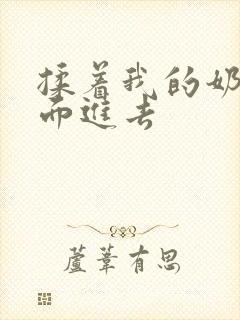 揉着我的奶
而進去
蘆葦有思